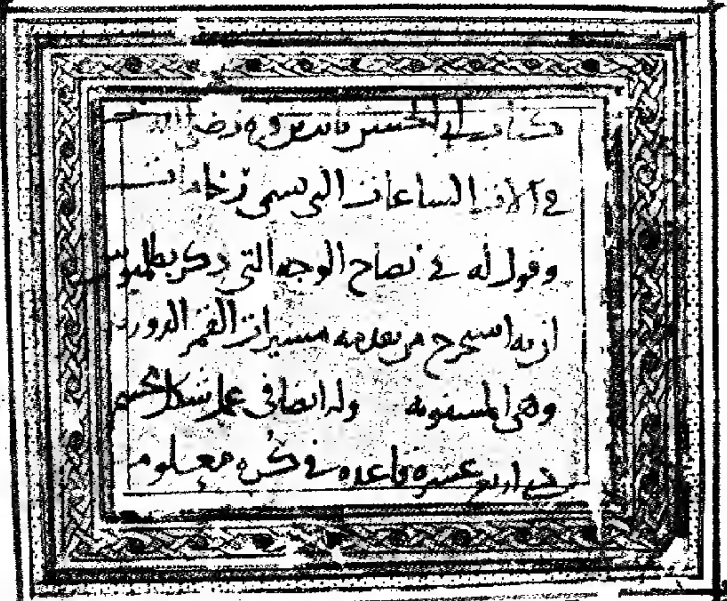 كتاب أبي الحسن ثابت بن قرة رضي الله عنه
في آلات الساعات التي تسمى رخامات
وقول له في إيضاح الوجه الذي ذكر بطلميوس
أن به استخرج من تقدمه مسيرات القمر الدورية
وهي المستوية وله أيضا في عمل شكل مجسم
ذي أربع عشرة قاعدة في كرة معلومة